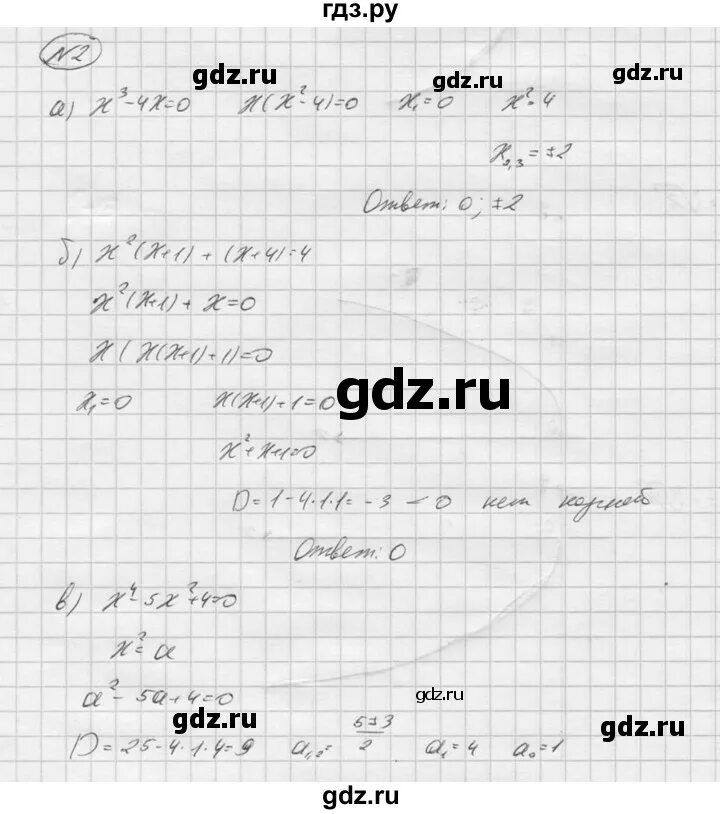 гдз.ру
№2
gdz.ru gdz.ru gdz.ru
а) x³-4x=0 x(x²-4)=0 x₁=0 x²=4
x₂,₃=±2
Ответ: 0; ±2
б) x²(x+1)+(x+4)=4
x²(x+1)+x=0
x(x(x+1)+1)=0
gdz.ru
x₁=0 x(x+1)+1=0
x²+x+1=0
D=1-4·1·1=-3<0 нет корней
Ответ: 0
в) x⁴-5x²+4=0
x²=a
a²-5a+4=0
gdz.ru gdz.ru gdz.ru
D=25-4·1·4=9 a₁,₂=5±3/2 a₁=4 a₂=1
gdz.ru